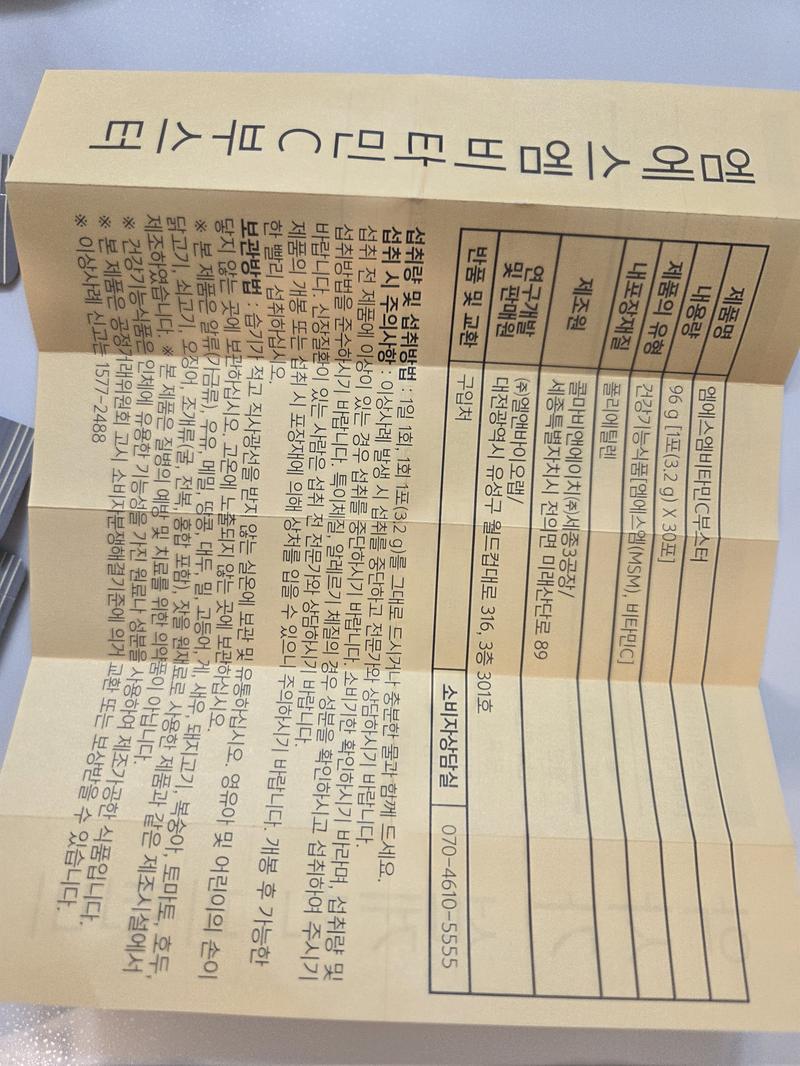 엠에스엠비타민C부스터
제품명 엠에스엠비타민C부스터
내용량 96 g [1포(3.2 g) X 30포]
제품의 유형 건강기능식품[엠에스엠(MSM), 비타민C]
내포장재질 폴리에틸렌
제조원 콜마비앤에이치(주)세종3공장/
세종특별자치시 전의면 미래산단로 89
연구개발 및 판매원 (주)엘앤바이오랩/
대전광역시 유성구 월드컵대로 316, 3층 301호
반품 및 교환 구입처 소비자상담실 070-4610-5555
섭취량 및 섭취방법 : 1일 1회, 1회 1포(3.2 g)를 그대로 드시거나 충분한 물과 함께 드세요.
섭취 시 주의사항 : 이상사례 발생 시 섭취를 중단하고 전문가와 상담하시기 바랍니다.
섭취 전 제품에 이상이 있는 경우 섭취를 중단하시기 바랍니다. 소비기한 확인하시기 바라며, 섭취량 및
섭취방법을 준수하시기 바랍니다. 특이체질, 알레르기 체질의 경우 성분을 확인하시고 섭취하여 주시기
바랍니다. 신장질환이 있는 사람은 섭취 전 전문가와 상담하시기 바랍니다.
제품의 개봉 또는 섭취 시 포장재에 의해 상처를 입을 수 있으니 주의하시기 바랍니다. 개봉 후 가능한
한 빨리 섭취하십시오.
보관방법 : 습기가 적고 직사광선을 받지 않는 실온에 보관 및 유통하십시오. 영유아 및 어린이의 손이
닿지 않는 곳에 보관하십시오. 고온에 노출되지 않는 곳에 보관하십시오.
※ 본 제품은 알류(가금류), 우유, 메밀, 땅콩, 대두, 밀, 고등어, 게, 새우, 돼지고기, 복숭아, 토마토, 호두,
닭고기, 쇠고기, 오징어, 조개류(굴, 전복, 홍합 포함), 잣을 원재료로 사용한 제품과 같은 제조시설에서
제조하였습니다. ※ 본 제품은 질병의 예방 및 치료를 위한 의약품이 아닙니다.
※ 건강기능식품은 인체에 유용한 기능성을 가진 원료나 성분을 사용하여 제조가공한 식품입니다.
※ 본 제품은 공정거래위원회 고시 소비자분쟁해결기준에 의거 교환 또는 보상받을 수 있습니다.
※ 이상사례 신고는 1577-2488